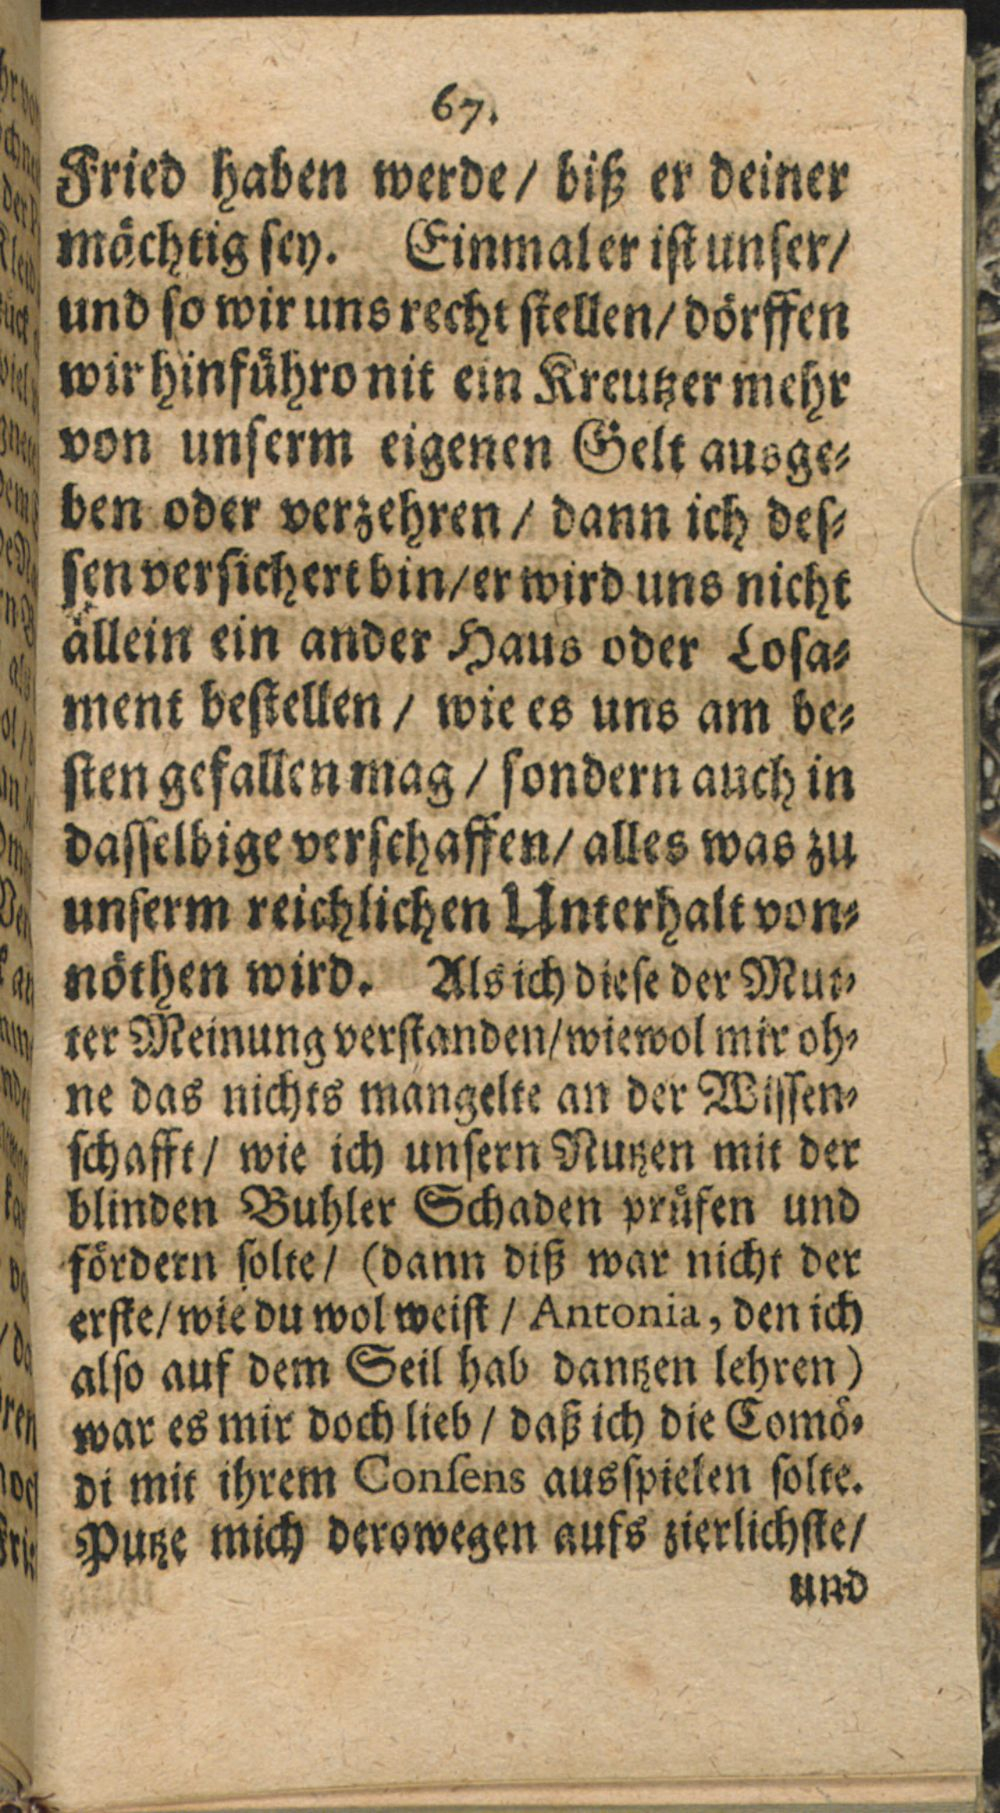 67.
Fried haben werde / biß er deiner
mächtig sey. Einmal er ist unser /
und so wir uns recht stellen / dörffen
wir hinführo nit ein Kreutzer mehr
von unserm eigenen Gelt ausge-
ben oder verzehren / dann ich des-
sen versichert bin / er wird uns nicht
allein ein ander Haus oder Losa-
ment bestellen / wie es uns am be-
sten gefallen mag / sondern auch in
dasselbige verschaffen / alles was zu
unserm reichlichen Unterhalt von-
nöthen wird. Als ich diese der Mut-
ter Meinung verstanden / wiewol mir oh-
ne das nichts mangelte an der Wissen-
schafft / wie ich unsern Nutzen mit der
blinden Buhler Schaden prüfen und
fördern solte / (dann diß war nicht der
erste / wie du wol weist / Antonia, den ich
also auf dem Seil hab dantzen lehren)
war es mir doch lieb / daß ich die Comö-
di mit ihrem Consens ausspielen solte.
Putze mich derowegen aufs zierlichste /
und